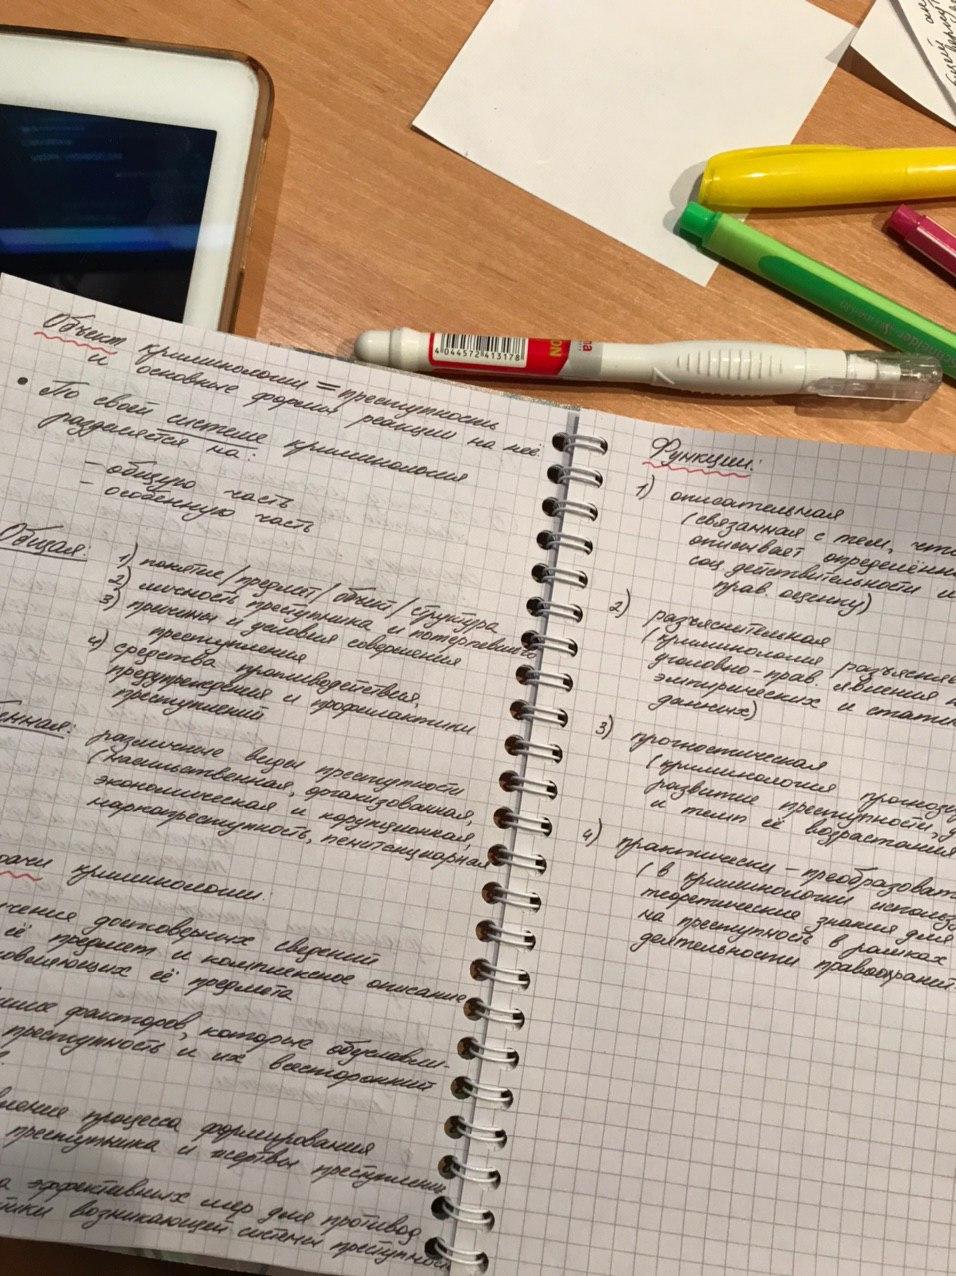 Объект криминологии = преступность
и основные формы реакции на неё
• По своей системе криминология
разделяется на:
- общую часть
- особенную часть
Общая:
1) понятие/предмет/объект/структура
2) личность преступника и потерпевшего
3) причины и условия совершения
преступления
4) средства противодействия,
предупреждения и профилактики
преступлений
енная:
различные виды преступности
(насильственная, организованная,
экономическая и корупционная,
наркопреступность, пенитенциарная
дачи криминологии:
чения достоверных сведений
её предмет и комплексное описание
овляющих её предмета
факторов, которые обуславли-
преступность и их всесторонний
процесса формирования
преступника и жертвы преступления
эффективных мер для противод
возникающей системы преступнос
Функции:
1) описательная
(связанная с тем, что
описывает определённ
соц. действительности и
прав. оценку)
2) разъяснительная
(криминология разъясняе
уголовно-прав. явления н
эмпирических и стати
данных)
3) прогностическая
(криминология прогнозу
развитие преступности, д
и темп её возрастания
4) практически-преобразоват
(в криминологии использ
теоретические знания для
на преступность в рамках
деятельности правоохранит
4 044572 413178